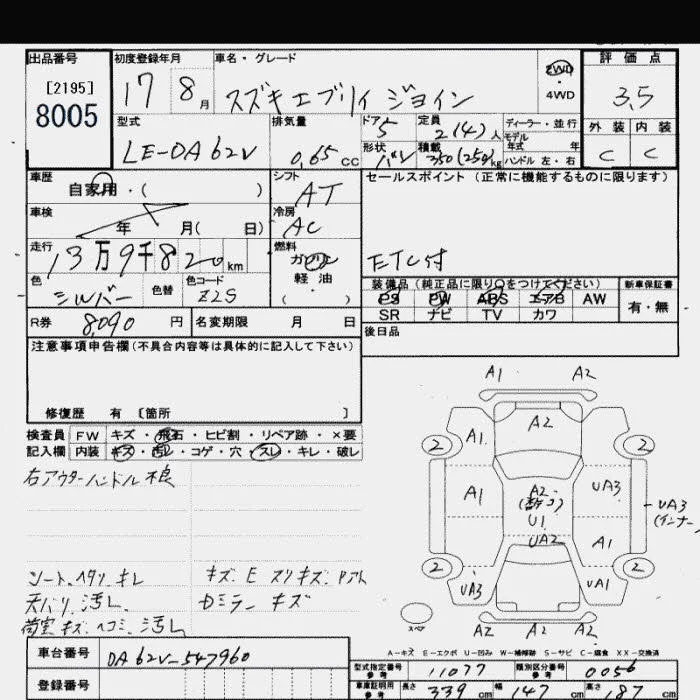 出品番号 初度登録年月 車名・グレード 2WD 評価点
[2195] 17 8月 スズキエブリイ ジョイン 4WD 3.5
8005
型式 排気量 ドア 5 定員 2(4)人 ディーラー・並行 外装 内装
モデル年式 年
LE-DA62V 0.65cc 形状 バン 積載 350(250)kg ハンドル 左・右 C C
車歴 シフト セールスポイント(正常に機能するものに限ります)
自家用・( ) AT
車検 冷房
年 月( 日) AC
走行 燃料
13万9千820km ガソリン ETC付
軽油
色 色替 色コード ( ) 装備品(純正品に限り○をつけてください) 新車保証書
シルバー Z2S PS PW ABS エアB AW 有・無
R券 8,090円 名変期限 月 日 SR ナビ TV カワ
後日品
注意事項申告欄(不具合内容等は具体的に記入して下さい)
修復歴 有 [箇所 ]
検査員 FW キズ・飛石・ヒビ割・リペア跡・×要
記入欄 内装 キズ・汚レ・コゲ・穴・スレ・キレ・破レ
右アウターハンドル不良
シート、ヘタリ、キレ
天バリ、汚レ
荷室キズ、ヘコミ、汚レ
キズ、E スリキズ、
Dミラー キズ
A1 A2
A2
2 A1 2
A1 A2 UA3 UA3
(インナー)
U1
UA2 A1
2 2
UA3 UA1
スペア
A2 A2 A2
A-キズ E-エクボ U-凹み W-補修跡 S-サビ C-腐食 XX-交換済
車台番号 DA62V-547960
登録番号
型式指定番号 参考 11077 類別区分番号 参考 0056
車庫証明用 参考 長さ 339cm 幅 147cm 高さ 187cm